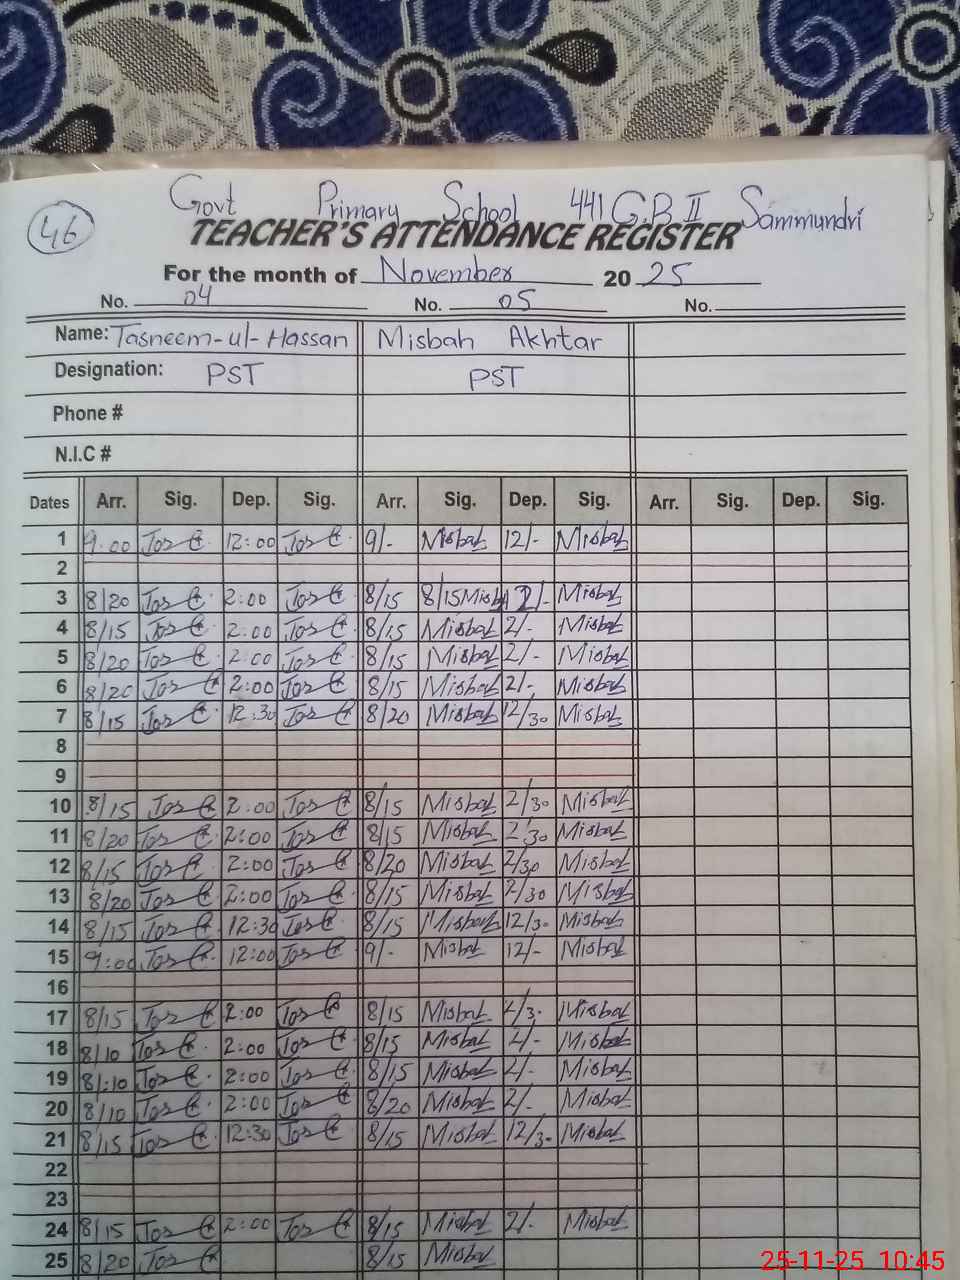 Govt Primary School 441 G.B II Sammundri
46
TEACHER'S ATTENDANCE REGISTER
For the month of November 2025
No. 04 No. 05 No.
Name: Tasneem-ul-Hassan Misbah Akhtar
Designation: PST PST
Phone #
N.I.C #
Dates Arr. Sig. Dep. Sig. Arr. Sig. Dep. Sig. Arr. Sig. Dep. Sig.
1 9.00 12:00 9/- Misbah 12/- Misbah
2
3 8/20 2:00 8/15 8/15 Misbah 2/- Misbah
4 8/15 2:00 8/15 Misbah 2/- Misbah
5 8/20 2:00 8/15 Misbah 2/- Misbah
6 8/20 2:00 8/15 Misbah 2/- Misbah
7 8/15 12:30 8/20 Misbah 12/30 Misbah
8
9
10 8/15 2:00 8/15 Misbah 2/30 Misbah
11 8/20 2:00 8/15 Misbah 2/30 Misbah
12 8/15 2:00 8/20 Misbah 2/30 Misbah
13 8/20 2:00 8/15 Misbah 2/30 Misbah
14 8/15 12:30 8/15 Misbah 12/30 Misbah
15 9:00 12:00 9/- Misbah 12/- Misbah
16
17 8/15 2:00 8/15 Misbah 2/30 Misbah
18 8/10 2:00 8/15 Misbah 2/- Misbah
19 8/:10 2:00 8/15 Misbah 2/- Misbah
20 8/10 2:00 8/20 Misbah 2/- Misbah
21 8/15 12:30 8/15 Misbah 12/30 Misbah
22
23
24 8/15 2:00 8/15 Misbah 2/- Misbah
25 8/20 8/15 Misbah
25-11-25 10:45